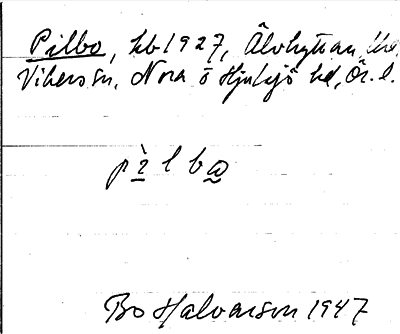 Pilbo, hb 1927, Älvhyttan,
Vikers sn, Nora o Hjulsjö hd, Ör. l.
Bo Halvarson 1947